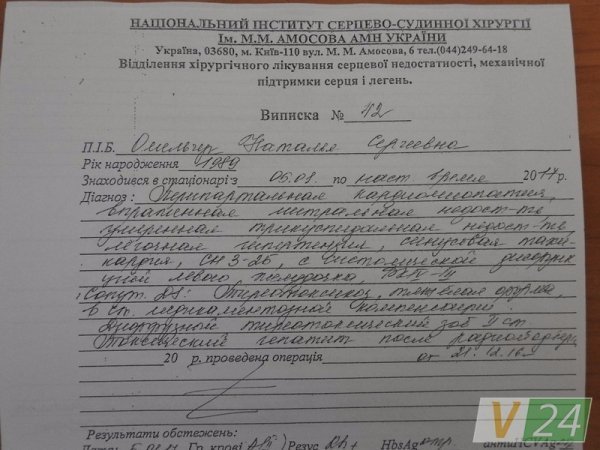 НАЦІОНАЛЬНИЙ ІНСТИТУТ СЕРЦЕВО-СУДИННОЇ ХІРУРГІЇ
Ім. М.М. АМОСОВА АМН УКРАЇНИ
Україна, 03680, м. Київ-110 вул. М. М. Амосова, 6 тел.(044)249-64-18
Відділення хірургічного лікування серцевої недостатності, механічної
підтримки серця і легень.
Виписка №
П.І.Б. Наталья Сергеевна
Рік народження 1989
Знаходився в стаціонарі з 06.01. по наст. время 2017р.
Діагноз: Перипартальная кардиомиопатия,
выраженная митральная недост-ть
умеренная трикуспидальная недост-ть
легочная гипертензия, синусовая тахи-
кардия, СН 2-Б, с систолической дисфунк
цией левого желудочка
Сопут. Ds: Тиреотоксикоз, тяжелая форма,
в ст. медикаментозной компенсации.
Диффузный тиреотоксический зоб II ст.
Токсический гепатит после
20 р. проведена операція от 21.12.16
Результати обстежень:
Гр. крові Резус Rh+ HbsAg антиHCVAg
V 24